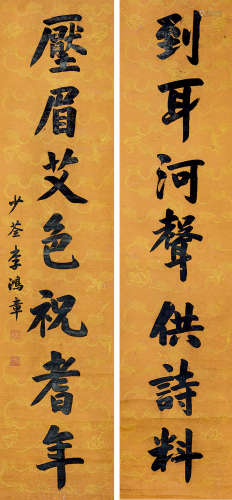 到耳河聲供詩料
壓眉艾色祝耆年
少荃李鴻章